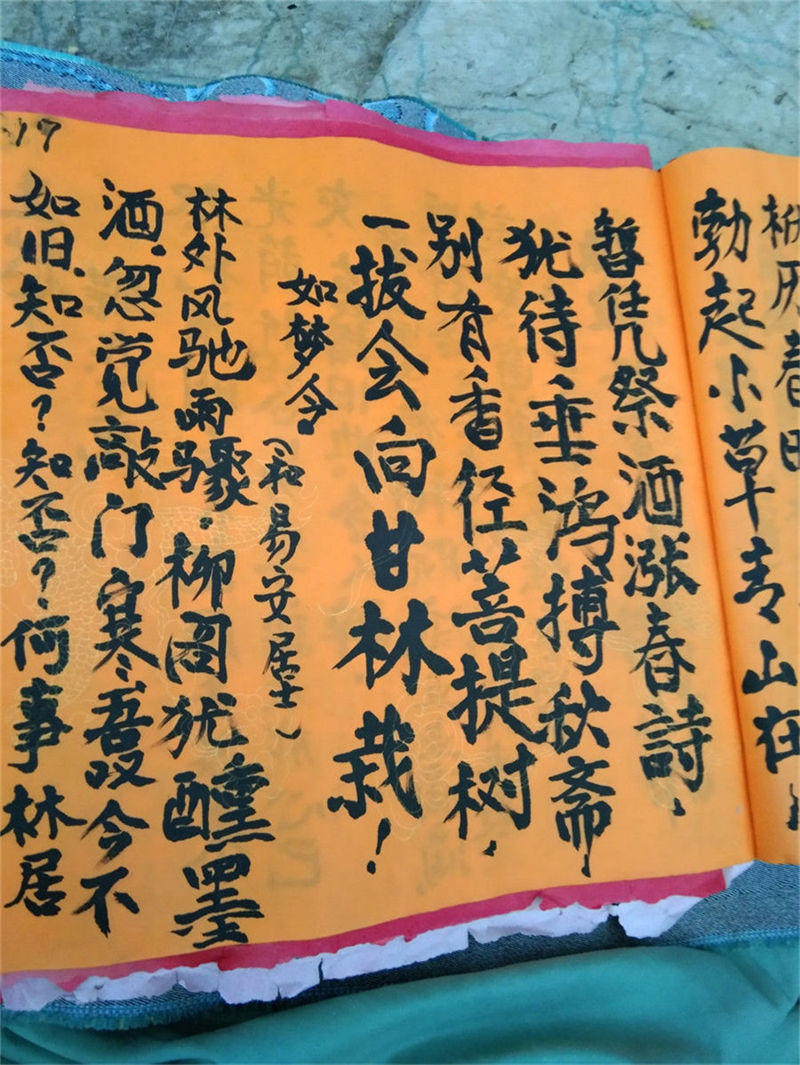 历春
勃起小草青山在，
暂凭祭酒涨春詩，
犹待垂鸿搏秋斋，
别有香径菩提树，
一拔会向甘林栽！
如梦令
（和易安居士）
林外风驰雨骤，柳阁犹醺墨
酒，忽觉敲门寒，吾叹今不
如旧，知否？知否？何事林居
17